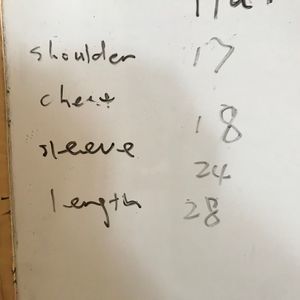 shoulder 17
chest 18
sleeve 24
length 28